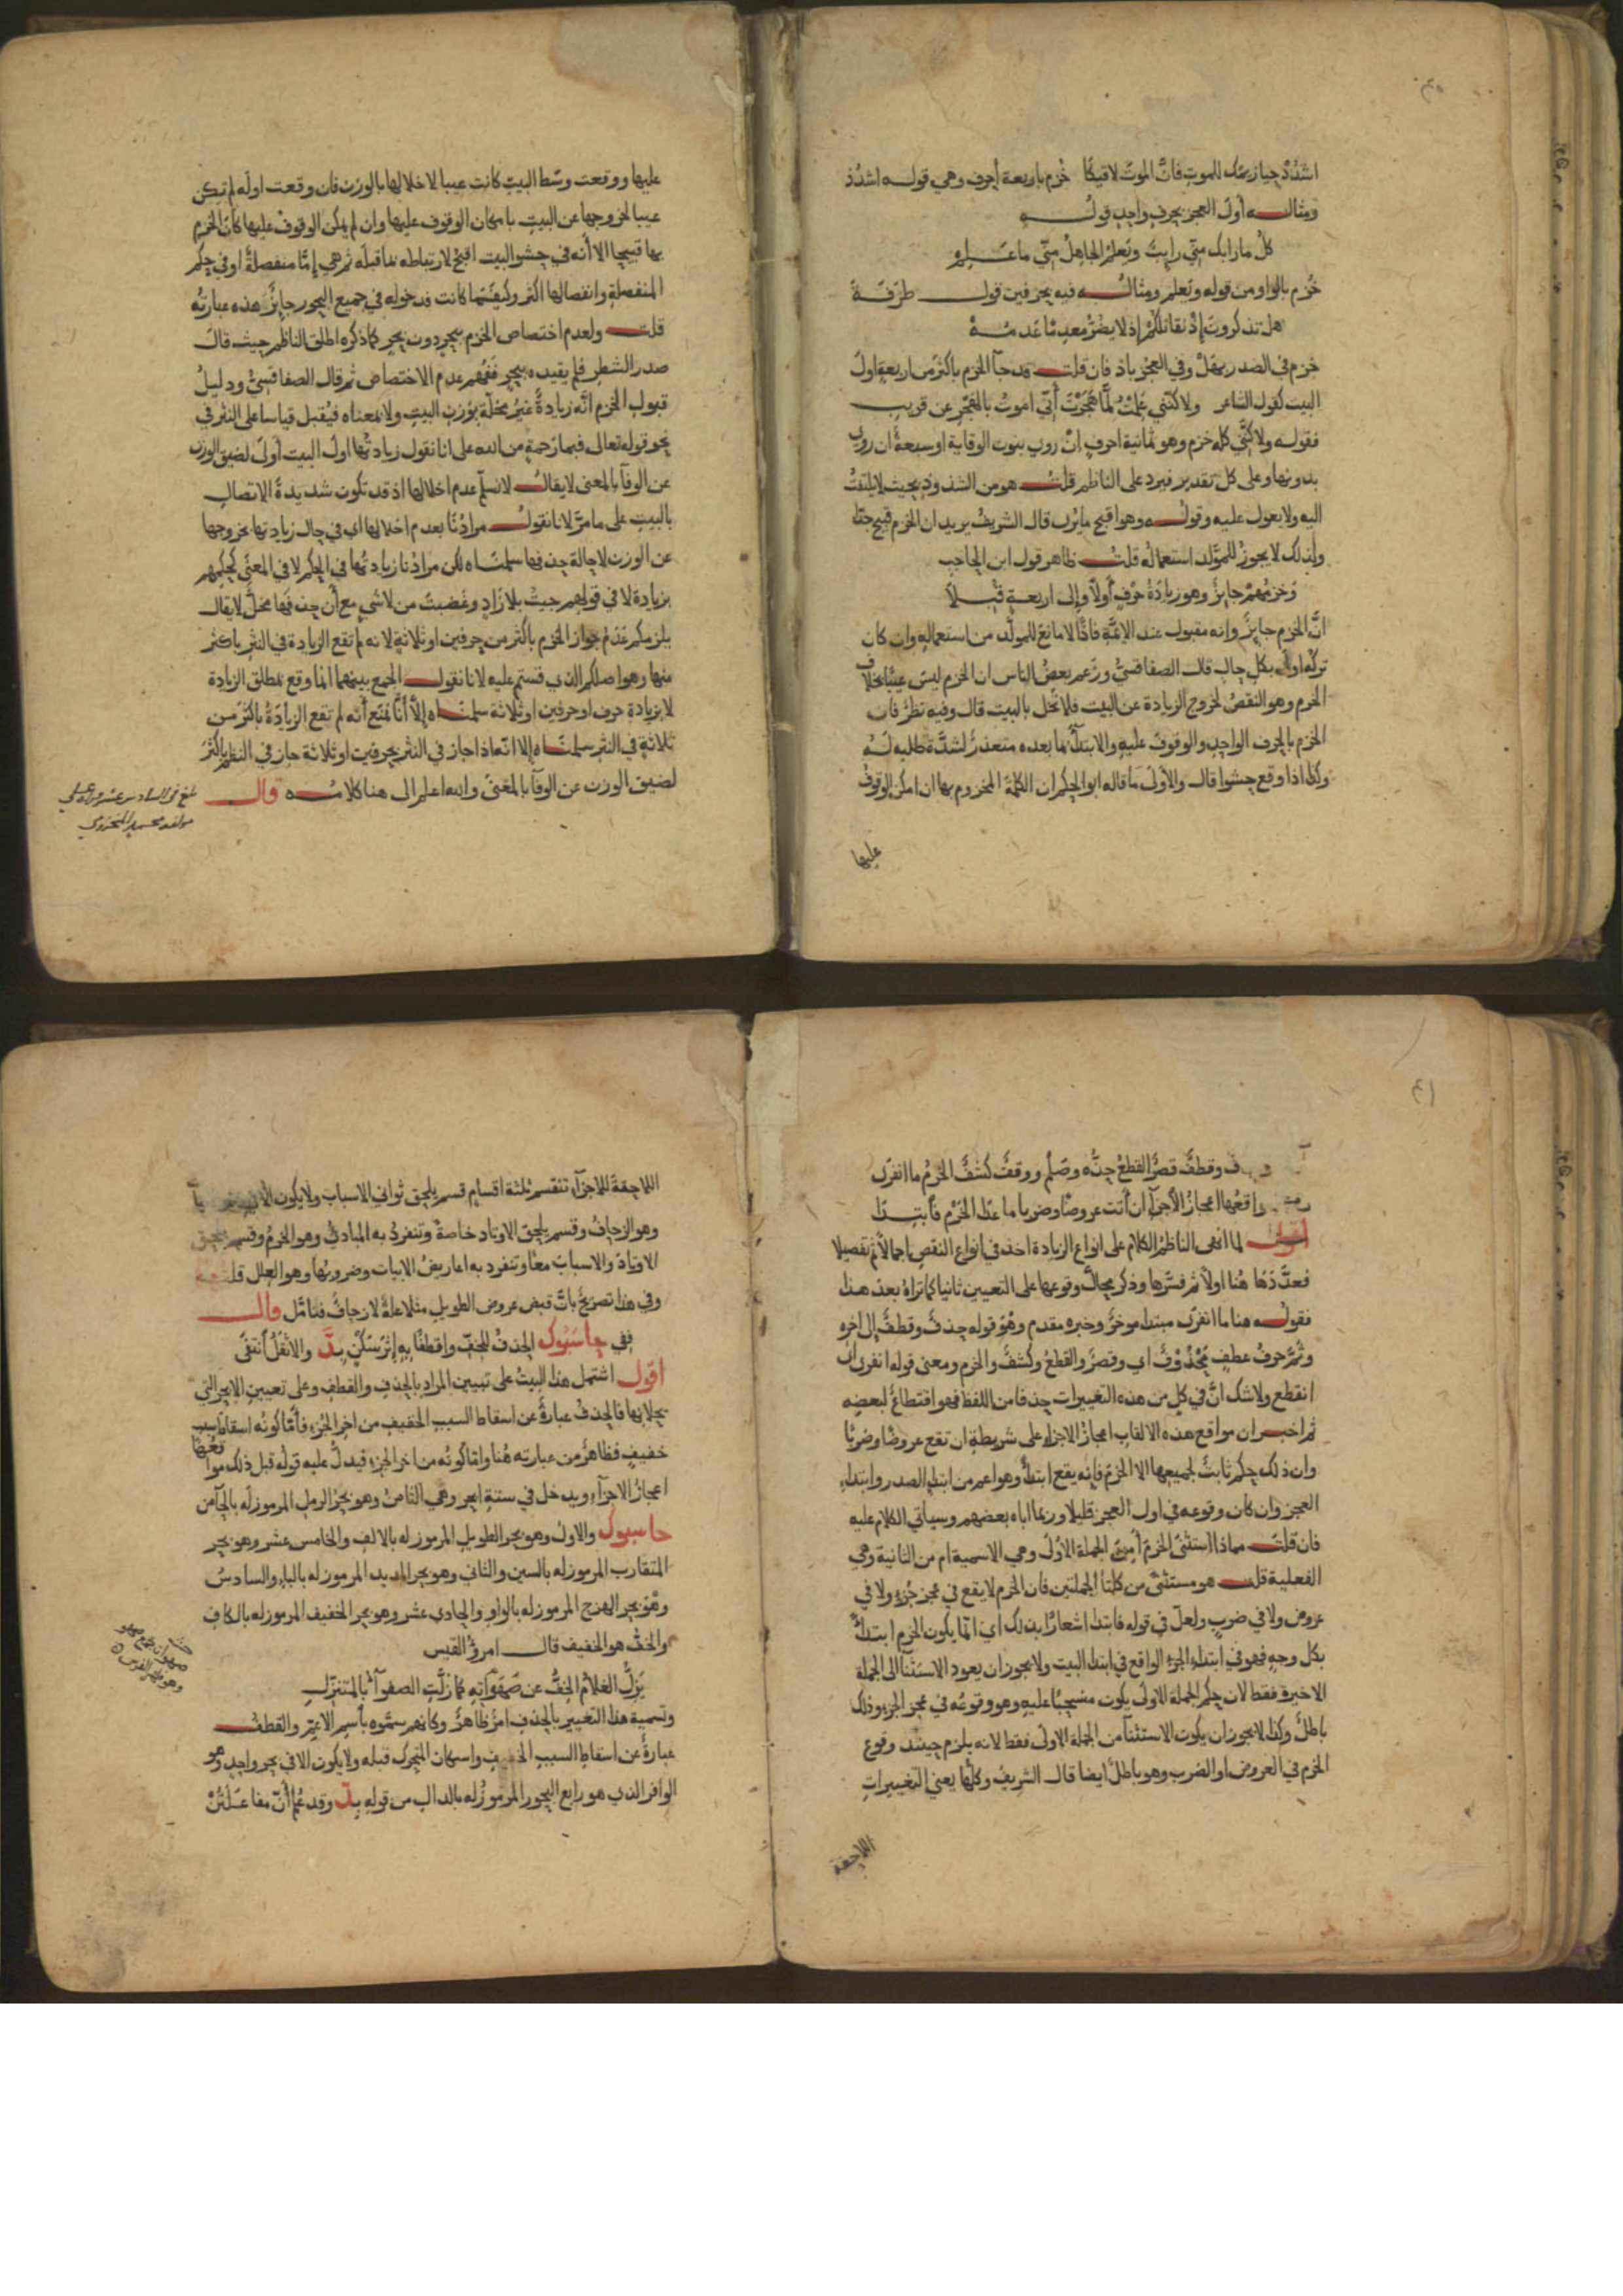 اشدُدْ حيازيمَك للموتِ فانَّ الموتَ لاقيكَا خُزِم باربعة أحرف وهي قولـه اشدُدْ
ومثالـه أولَ العجز بحرفٍ واحدٍ قولُـه
كلُّ ما رابك منّي رايبٌ ويَعلمُ الجاهلُ منّي ما عَـلِم
خُزم بالواو من قوله ويَعلم ومثالُـه فيه بحرفين قول طَرَفَة
هل تذكرون إذْ نقاتلكُمْ إذ لا يضُرُّ معدِمًا عَدَمُـهْ
خزم في الصدر بهَلْ وفي العجُز باذ فان قلت قد جآ الخزم باكثَر من اربعةٍ اول
البيت كقول الشاعر ولاكنّني عَلِمْتُ لمَّا هُجِرْتُ أنّي اموتُ بالهَجْرِ عن قريب
فقولـه ولاكنَّني كله خزم وهو ثمانية احرفٍ إنْ روي بنون الوقاية او سبعةٌ ان روي
بدونها وعلى كل تقدير فيرد على الناظم قلتُ هو من الشذوذ بحيث لا يلتفتُ
اليه ولا يعول عليه وقولُـه وهو اقبح ما يُرَى قال الشريفُ يريد ان الخزم قبيح جدًّا
ولذلك لا يجوزُ للمولَّد استعمالُه قلتُ ظاهر قول ابن الحاجب
وَخَزْمُهُمْ جايزٌ وهو زيادَةُ حَرْفٍ أولًا وإلى اربعةٍ قُبِـلَا
انَّ الخزم جايزٌ وانه مقبول عند الايمّةِ فاذًا لا مانعَ للمولّد من استعماله وان كان
تركُه اولَى بكل حال قال الصفاقسيُّ وزعم بعضُ الناس ان الخزم ليس عيبًا بخلاف
الخرم وهو النقصُ لخروج الزيادة عن البيت فلا تُخِل بالبيت قال وفيه نظرٌ فان
الخزم بالحرف الواحدِ والوقوفَ عليهِ والابتدآ بما بعده متعذرٌ لشدَّة طلبه لـه
وكذا اذا وقع حشوا قال والأولَى ما قاله ابو الحكم ان الكلمة المخزوم بها ان امكن الوقوفُ
عليها
عليها ووقعت وسَط البيت كانت عيبا لاخلالها بالوزن فان وقعت اولَه لم تكن
عيبا لخروجها عن البيت بامكان الوقوف عليها وان لم يمكن الوقوفُ عليها كان الخزم
بها قبيحا الا أنه في حشو البيت اقبحُ لارتباطه بما قبلَه ثم هي إمَّا منفصلةٌ او في حكم
المنفصلةِ وانفصالها اكثر وكيفَما كانت فدخوله في جميع البحور جايزٌ هذه عبارتُه
قلتُ ولعدم اختصاص الخزم ببحرٍ دون بحرٍ كما ذكره اطلق الناظم حيث قال
صدر الشطر فلم يقيده ببحرٍ فَفُهِمَ عدم الاختصاص ثم قال الصفاقسيُّ ودليلُ
قبولِ الخزم انّه زيادةٌ غيرُ مخلّة بوَزنِ البيتِ ولا بمعناه فيُقبل قياسا على النثر في
نحو قوله تعالى فبما رَحمةٍ من الله على انا نقول زيادتُها اول البيت أولَى لضيق الوزن
عن الوفآ بالمعنى لا يقالُ لا نسلّم عدم اخلالها اذ قد تكون شديدةَ الاتصالِ
بالبيتِ على ما مرَّ لانا نقولُ مرادُنَا بعدم اخلالها اي في حال زيادتها بخروجها
عن الوزن لا حالةَ حذفها سلمنَـاه لكن مرادُنا زيادتُها في الحكم لا في المعنَى كحُكمِهم
بزيادة لا في قولهم جيتُ بلا زادٍ وغَضبتَ من لا شيٍ مع أن حذفَها مخلٌّ لا يقال
يلزمكم عَدَمُ جواز الخزم باكثرَ من حرفين او ثلاثةٍ لانه لم تقع الزيادة في النثر باكثر
منها وهو اصلكم الذي قستم عليه لانا نقولُ الجمع بينهما انما وقع بمطلق الزيادة
لا بزيادةِ حرف او حرفين او ثلاثة سلمنَـاه إلاَّ أنَّا نمنَع أنه لم تقع الزيادةُ باكثرَ من
ثلاثةٍ في النثر سلمنَـاه إلا انّها ذا جاز في النثر بحرفين او ثلاثة جاز في النظم باكثَرَ
لضيق الوزن عن الوفآ بالمعنَى والله اعلم الى هنا كلامُـه قال
بلغ في السادس عشر
مولفه محمد المخزومي
وقطفٌ قصرٌ القطعُ حذُّه وصَلْم ووقفٌ كشفٌ الخرمُ ما انفرَى
واقعُها اعجازُ الأجزآ ان أتت عروضًا وضربا ما عدَا الخَرْم فابتِـدَا
أقولُ لما انهى الناظمُ الكلام على انواع الزيادة اخذ في انواع النقص اجمالا ثم تفصيلا
فعدَّدَهَا هُنا اولًا ثم فسَّرها وذكر مجالَّ وقوعها على التعيين ثانيا كما تراهُ بعدَ هذا
فقولُـه هنا ما انفرَى مبتدا موخرٌ وخبره مقدم وهْوَ قوله حذفٌ وقطفٌ إلى اخره
وثمَّ حرفُ عطفٍ مَحْذوفٌ اي وقصرٌ والقطعُ وكشفٌ والخرم ومعنى قوله انفرى اي
انقطع ولا شك انَّ في كلٍ من هذه التغييرات حذفا من اللفظ فهو اقتطاعٌ لبعضِه
ثم اخبر ان مواقع هذه الالقاب اعجازُ الاجزاء على شريطةِ ان تقع عروضًا وضربًا
وان ذلك حكم ثابتٌ لجميعها الا الخرمَ فانه يقع ابتداءً وهو اعم من ابتداءِ الصدر وابتداءِ
العجز وان كان وقوعه في اول العجز قليلا وربما اباه بعضهم وسيأتي الكلام عليه
فان قلت مماذا استثنَى الخرمَ أمِنَ الجملة الأولَى وهي الاسمية ام من الثانية وهي
الفعلية قلت هو مستثنًى من كلتا الجملتين فان الخرم لا يقع في عجز جُزءٍ ولا في
عروضٍ ولا في ضربٍ ولعلّ في قوله فابتدا اشعارًا بذلك اي انما يكون الخرم ابتداءً
بكل وجهٍ فهو في ابتداءِ الجزءِ الواقع في ابتداءِ البيت ولا يجوز ان يعود الاستثنآ الى الجملة
الاخيرة فقط لان حكم الجملة الاولَى يكون منسحبًا عليه وهو وقوعُه في عجز الجزءِ وذلك
باطلٌ وكذا لا يجوز ان يكون الاستثنآ من الجملة الاولَى فقط لانه يلزم حينئذ وقوع
الخرم في العروض او الضرب وهو باطلٌ ايضا قال الشريفُ وكلُّها يعني التغييراتِ
اللاحقة
اللاحقةَ للاجزآءِ تنقسم ثلثة اقسامٍ قسم يلحق ثوانيَ الاسباب ولا يكون
وهو الزحافُ وقسم يلحق الاوتاد خاصةً وتنفردُ به المبادئُ وهو الخرمُ وقسم يلحق
الاوتادَ والاسبابَ معًا وتنفرد به اعاريضُ الابيات وضروبُها وهو العلل قلت
وفي هذا تصريحٌ بانّ قبض عروض الطويل مثلا علةٌ لا زحافٌ فتامّل قال
ففي حاسَبُوك الحذفُ للخِفّ واقطفًا به إثرَ سَكّنٍ بِدَّ والاثقلُ انتفَى
اقول اشتمل هذا البيتُ على تبيين المراد بالحذفِ والقطفِ وعلى تعيين الابحر التي
يحلانها فالحذفُ عبارةٌ عن اسقاط السببِ الخفيفِ من اخر الجُزءِ فأمّا كونُه اسقاط سبب
خفيف فظاهرٌ من عبارته هُنا وامّا كونُه من اخر الجزءِ فيدلُّ عليه قولُه قبل ذلك مواقعُها
اعجازُ الاجزآءِ ويدخل في ستةِ ابحرٍ وهي الثامنُ وهو بحرُ الرملِ المرموز لَه بالحآمن
حاسبوك والاولُ وهو بحر الطويل المرموز له بالالف والخامس عشر وهو بحر
المتقارب المرموز له بالسين والثاني وهو بحر المديد المرموز له بالباءِ والسادسُ
وهْوَ بحر الهزج المرموز له بالواو والحادي عشر وهو بحر الخفيف المرموز له بالكافِ
والخفُّ هو الخفيف قال امروُ القيس
يَزِلُّ الغلامُ الخِفُّ عن صَهَواتِه كما زلَّتِ الصفوآءُ بالمتنزِّلِ
وتسمية هذا التغيير بالحذفِ امرٌ ظاهرٌ وكانهم سمَّوه باسم الاعمّ والقطفُ
عبارةٌ عن اسقاطِ السببِ الخفيفِ واسكان المتحرك قبله ولا يكون الا في بحر واحدٍ وهو
الوافر الذي هو رابع البحور المرموزُ له بالدال من قوله بِدَّ وقد عُلم أنّ مفاعَلَتُنْ